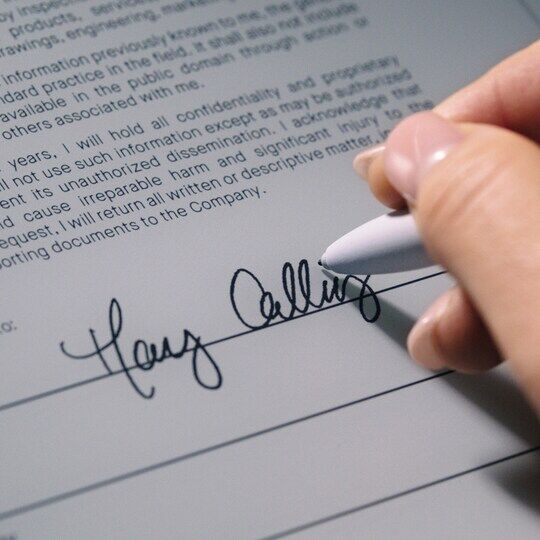 by inspection
products, services
drawings, engineering, marketing
information previously known to me, the
standard practice in the field. It shall also not include
available in the public domain through action or
others associated with me.
years, I will hold all confidentiality and proprietary
not use such information except as may be authorized
its unauthorized dissemination. I acknowledge that
cause irreparable harm and significant injury to the
request, I will return all written or descriptive matter,
documents to the Company.
to: